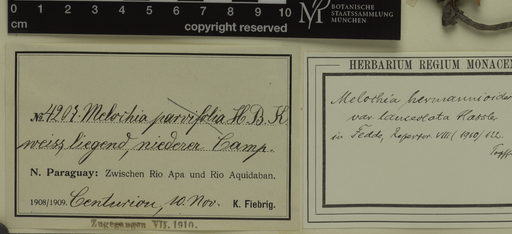 0 1 2 3 4 5 6 7 8 9 10
cm
copyright reserved
BOTANISCHE
STAATSSAMMLUNG
MÜNCHEN
No. 4203. Melochia parvifolia H. B. K.
weiss, liegend, niederer Camp.
N. Paraguay: Zwischen Rio Apa und Rio Aquidaban.
1908/1909. Centurion, 10. Nov. K. Fiebrig.
Zugegangen VII. 1910.
HERBARIUM REGIUM MONACEN
Melochia hermannioides
var lanceolata Hassler
in Fedde, Repertor. VIII (1910)